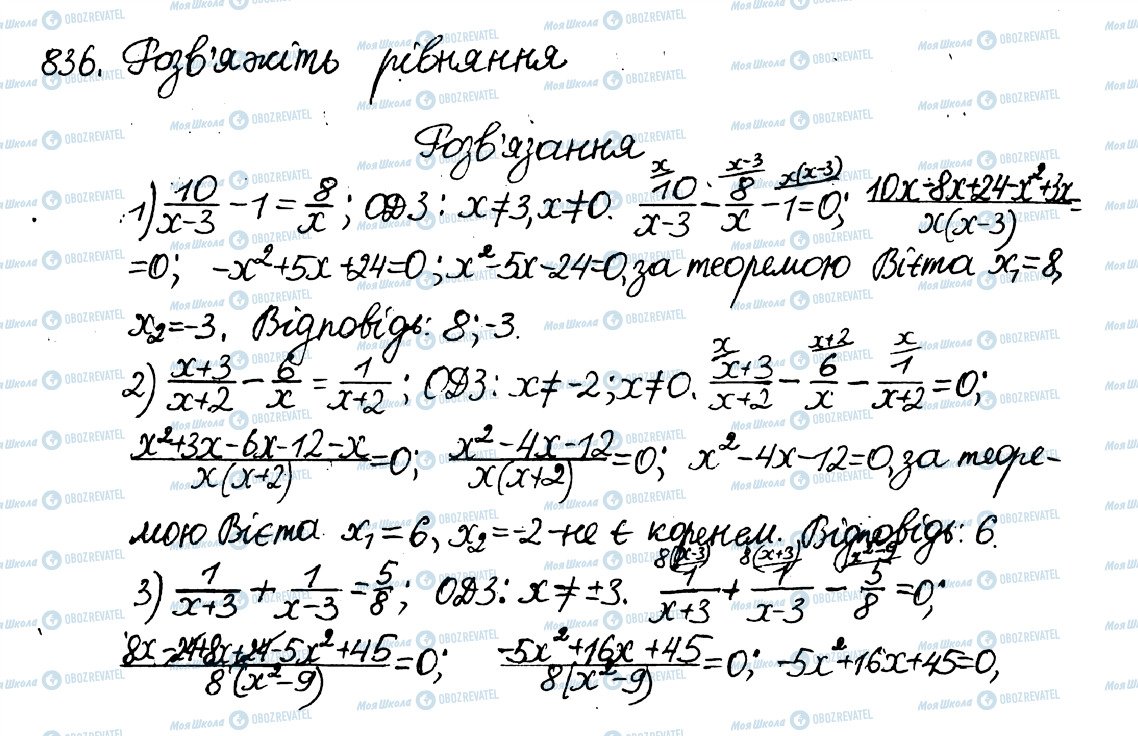 836. Розв'яжіть рівняння
Розв'язання
1) 10/(x-3) - 1 = 8/x; ОДЗ: x≠3, x≠0. 10/(x-3) (x) - 8/x (x-3) - 1 (x(x-3)) = 0; (10x-8x+24-x²+3x)/(x(x-3)) =
=0; -x²+5x+24=0; x²-5x-24=0, за теоремою Вієта x₁=8,
x₂=-3. Відповідь: 8; -3.
2) (x+3)/(x+2) - 6/x = 1/(x+2); ОДЗ: x≠-2; x≠0. (x+3)/(x+2) (x) - 6/x (x+2) - 1/(x+2) (x) = 0;
(x²+3x-6x-12-x)/(x(x+2)) = 0; (x²-4x-12)/(x(x+2)) = 0; x²-4x-12=0, за теоре-
мою Вієта x₁=6, x₂=-2 -не є коренем. Відповідь: 6.
3) 1/(x+3) + 1/(x-3) = 5/8; ОДЗ: x≠±3. 1/(x+3) (8(x-3)) + 1/(x-3) (8(x+3)) - 5/8 (x²-9) = 0;
(8x-24+8x+24-5x²+45)/(8(x²-9)) = 0; (-5x²+16x+45)/(8(x²-9)) = 0; -5x²+16x+45=0,
Моя Школа OBOZREVATEL